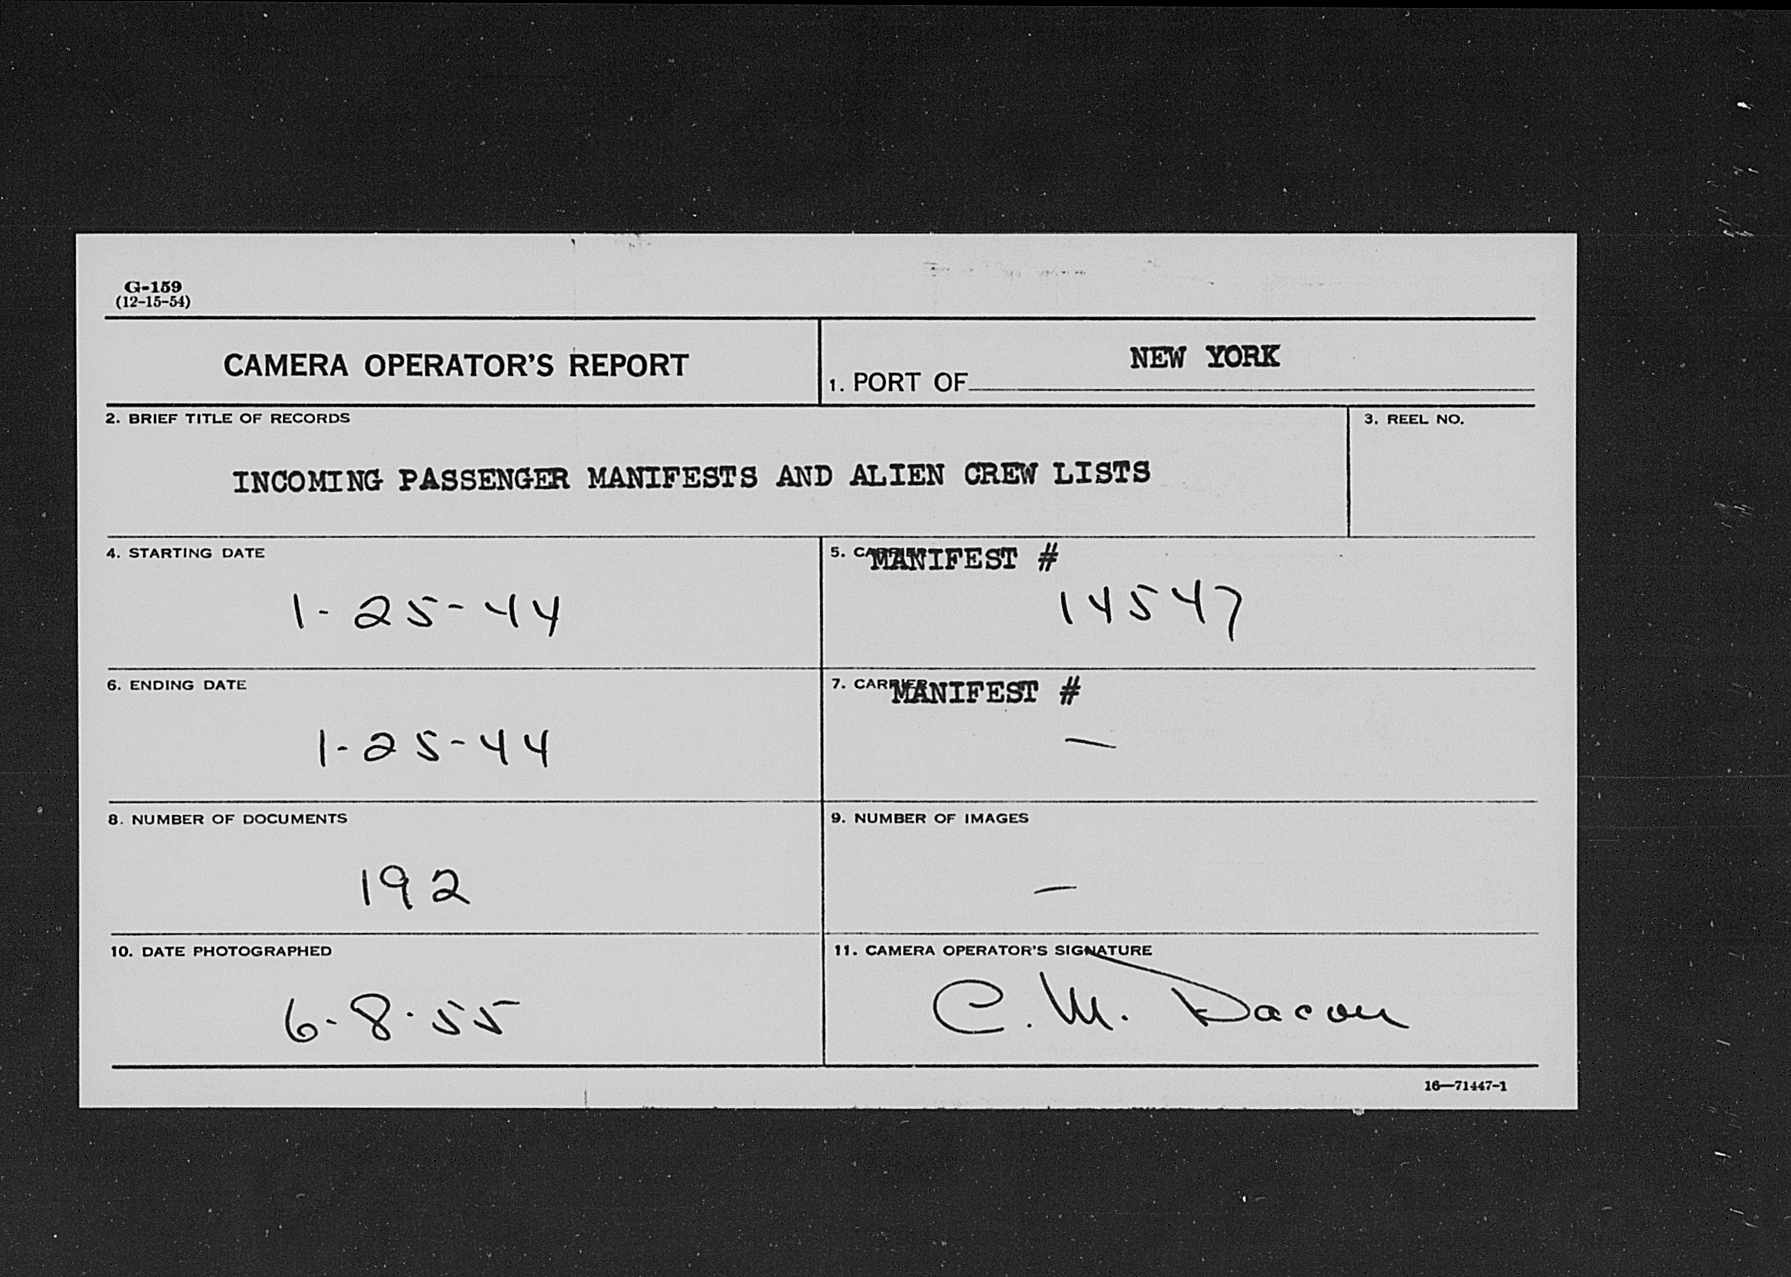 G-159
(12-15-54)
CAMERA OPERATOR'S REPORT
1. PORT OF NEW YORK
2. BRIEF TITLE OF RECORDS
INCOMING PASSENGER MANIFESTS AND ALIEN CREW LISTS
3. REEL NO.
4. STARTING DATE
1-25-44
5. CARRIER MANIFEST #
14547
6. ENDING DATE
1-25-44
7. CARRIER MANIFEST #
—
8. NUMBER OF DOCUMENTS
192
9. NUMBER OF IMAGES
—
10. DATE PHOTOGRAPHED
6-8-55
11. CAMERA OPERATOR'S SIGNATURE
C. M. Dacou
16—71447-1